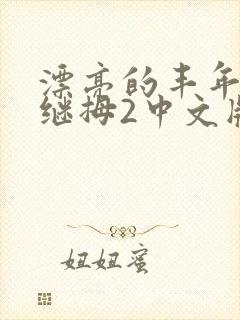 漂亮的丰年
继拇2中文版
妞妞蜜